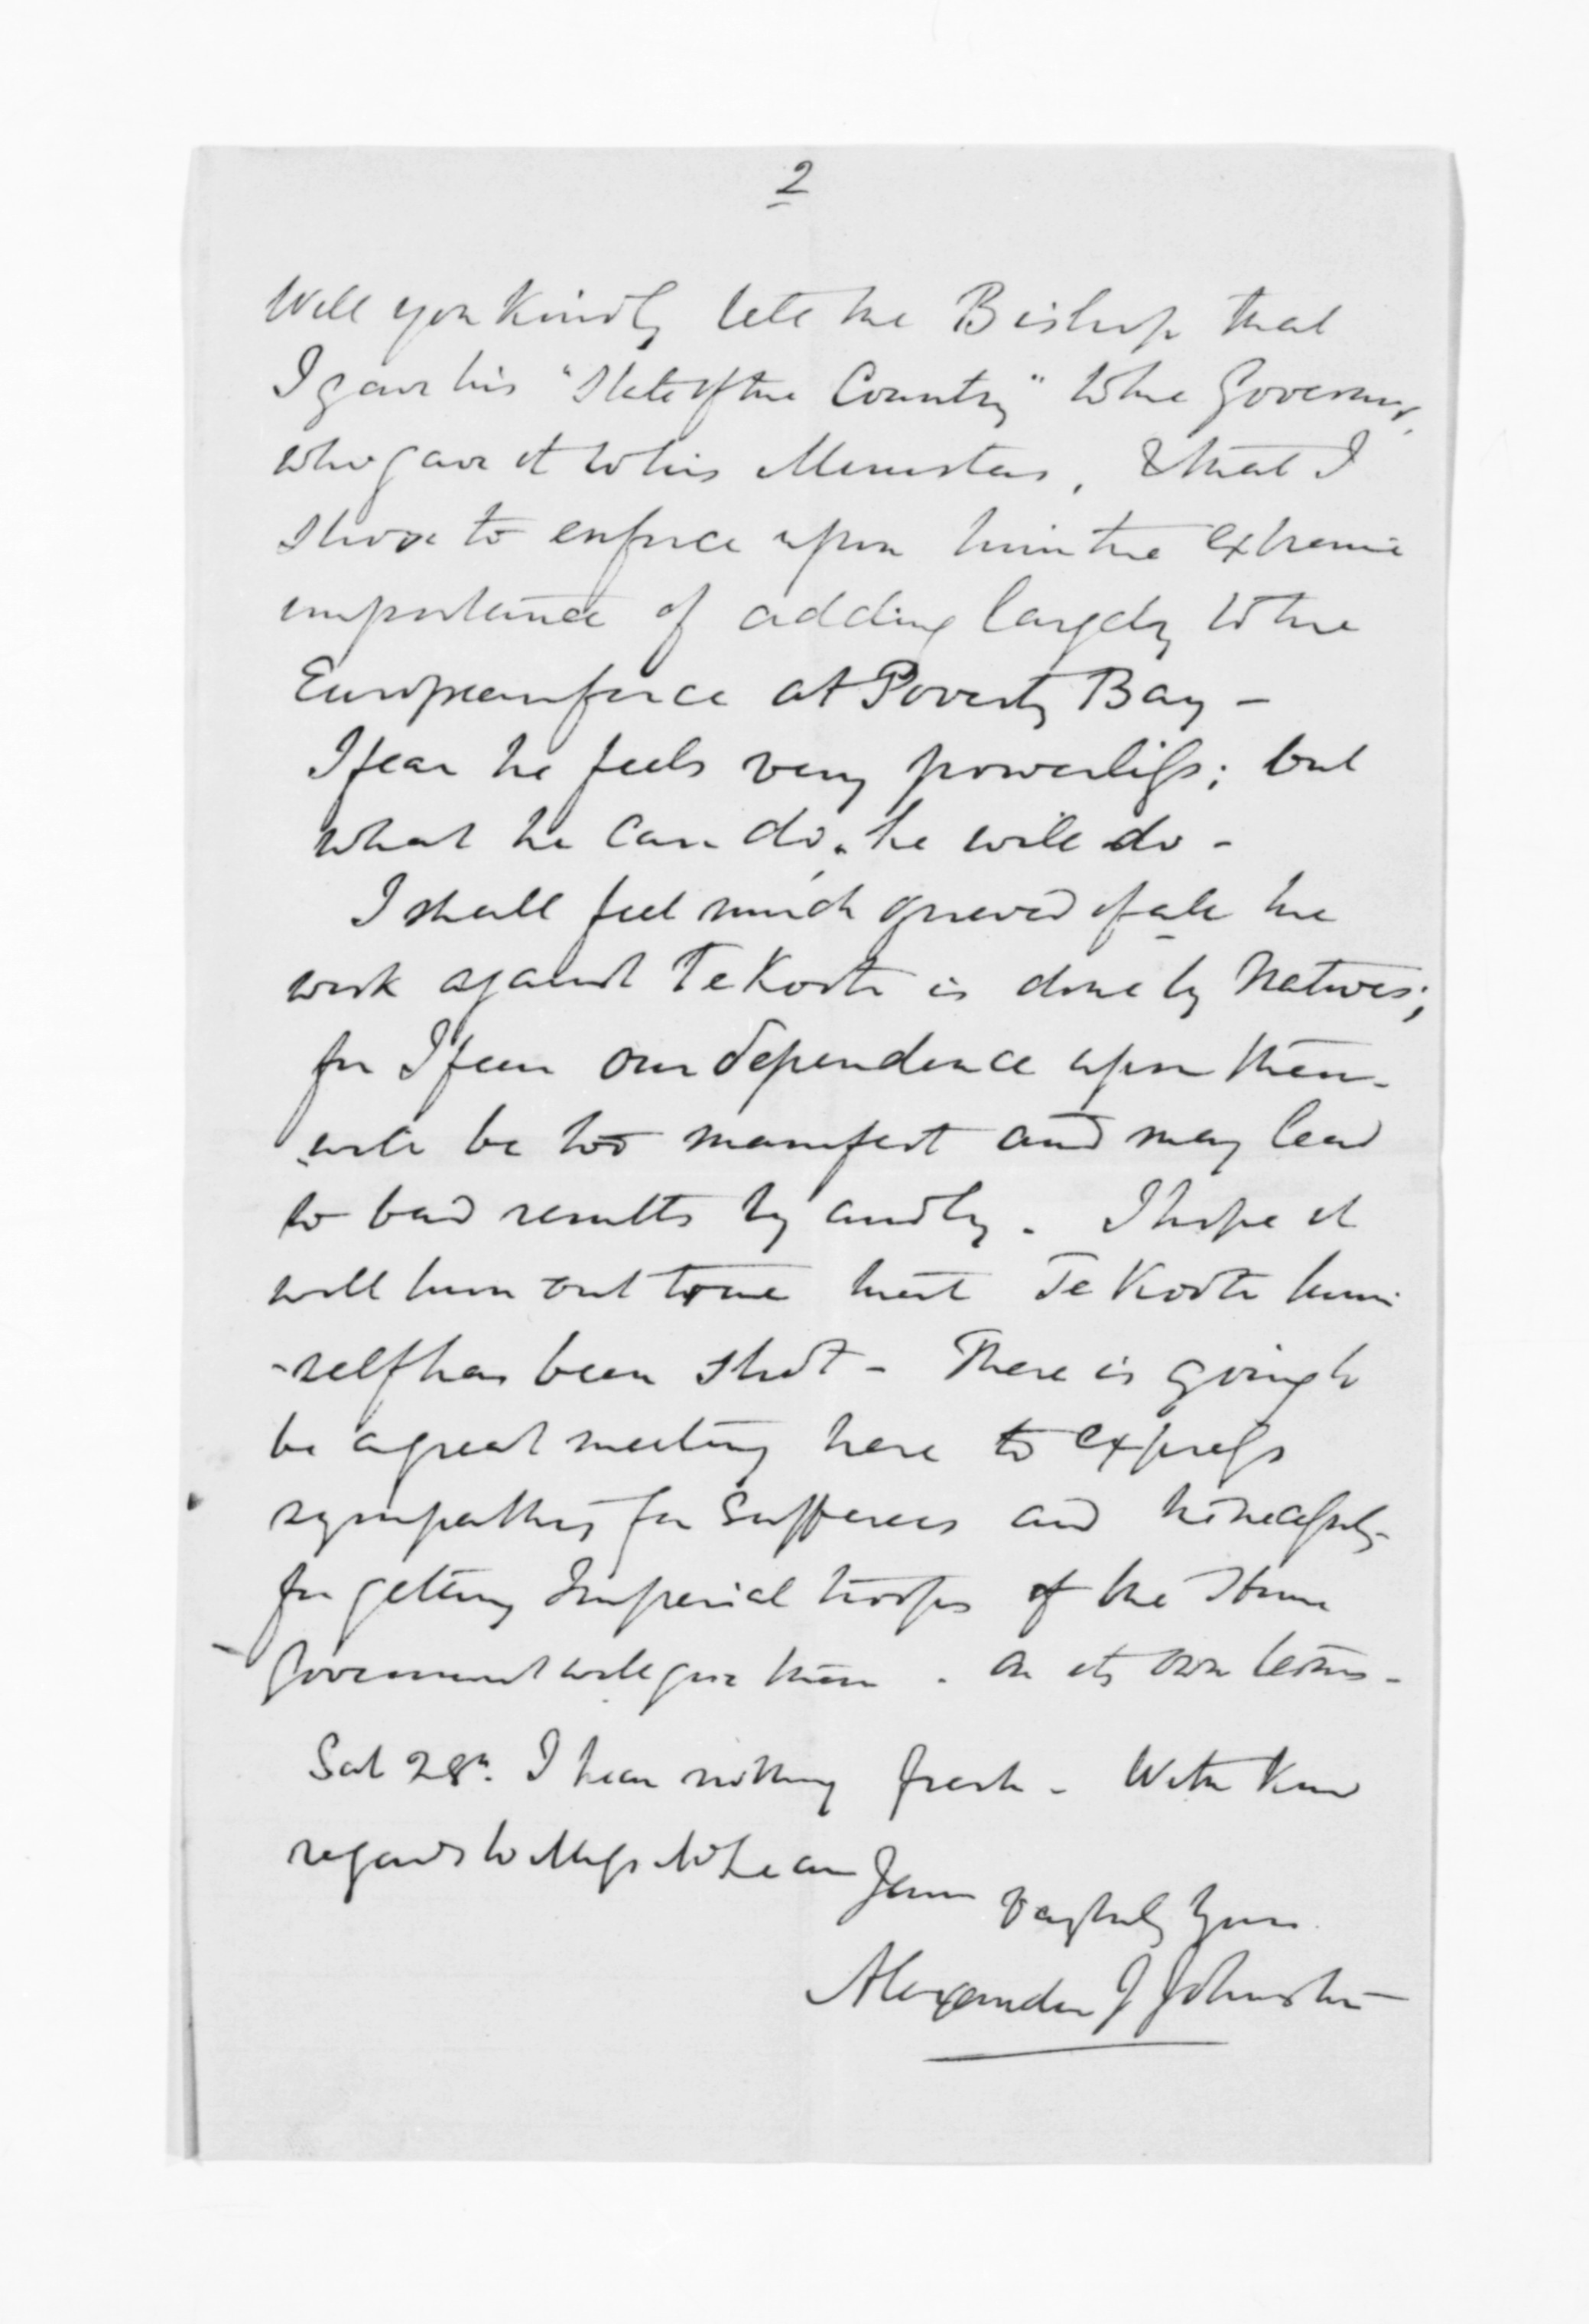 2
Will you kindly tell the Bishop that
I gave his "State of the Country" to the Governor,
who gave it to his Ministers, & that I
strove to enforce upon him the extreme
importance of adding largely to the
European force at Poverty Bay -
I fear he feels very powerless; but
what he can do, he will do -
I shall feel much grieved if all the
work against Te Kooti is done by Natives;
for I fear our dependence upon them
will be too manifest and may lead
to bad results by and by. I hope it
will turn out true that Te Kooti him
-self has been shot - There is going to
be a great meeting here to express
sympathy for Sufferers and
for getting Imperial troops if the Home
Government will give them. on its own terms -
Sat 28th. I hear nothing fresh - With kind
regards to Mrs McLean I am
faithfully yours
Alexander J Johnston